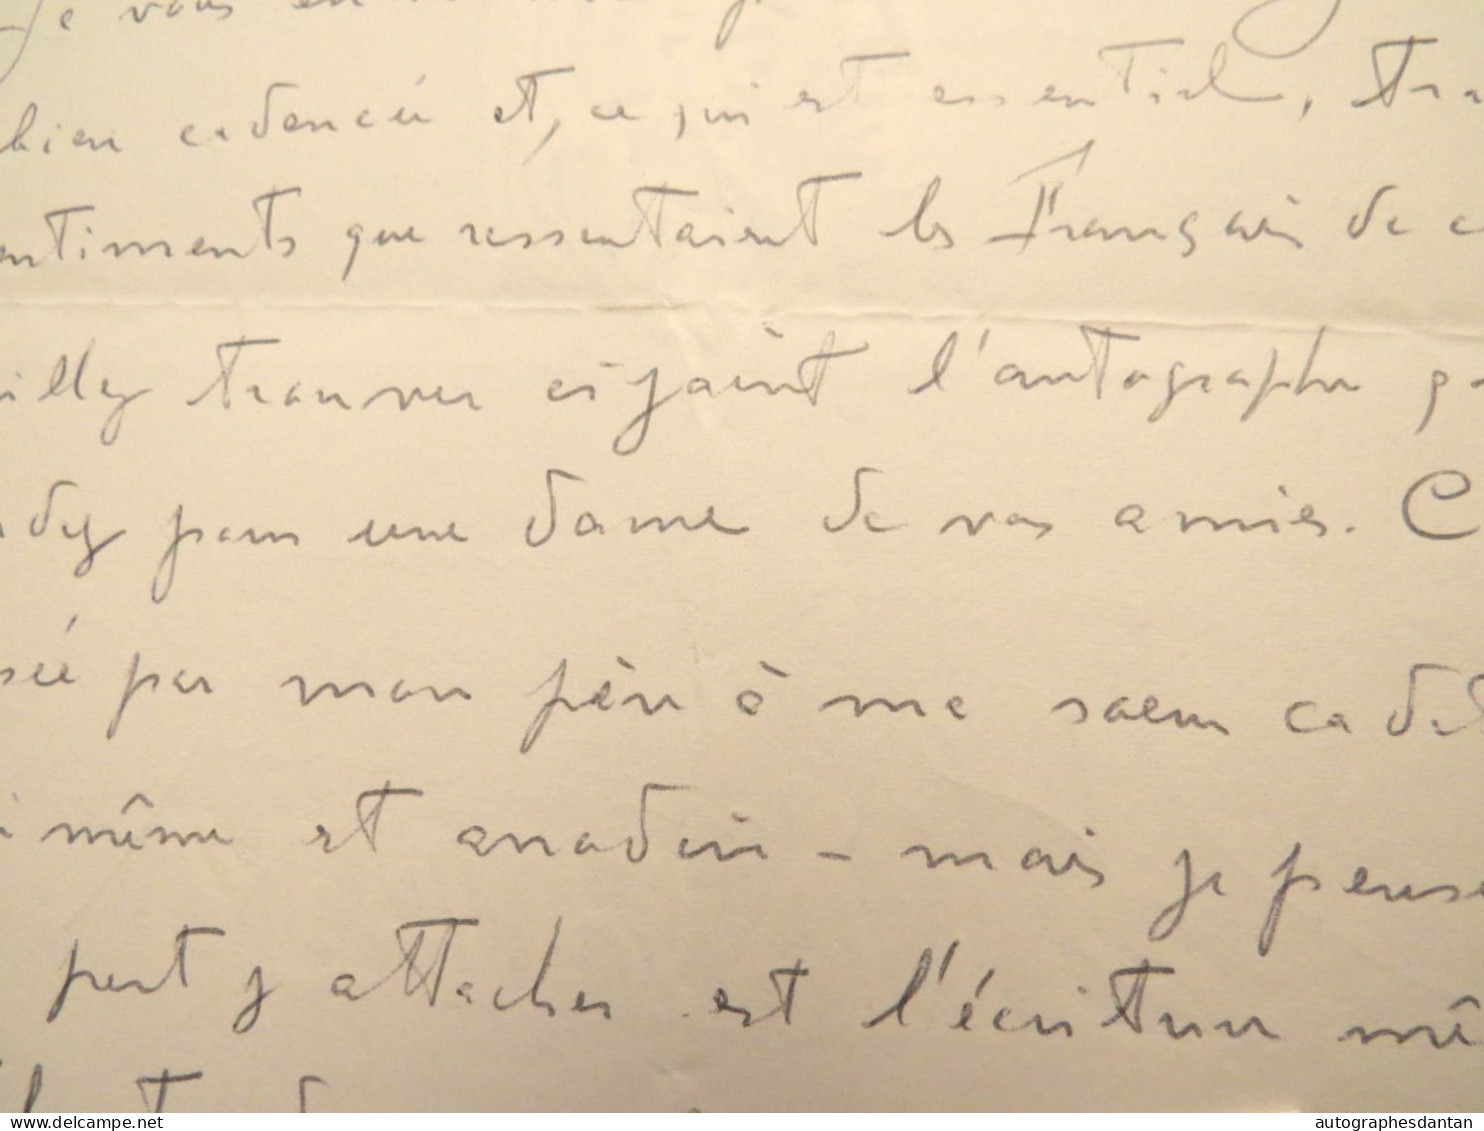 Je vous en
bien cadencée et, ce qui est essentiel, tra
entiments que ressentaient les Français de c
illez trouver ci joint l'autographe
dez pour une dame de vos amies. C
sée par mon père à ma sœur cadet
même est anodin - mais je pense
peut y attacher est l'écriture mê
delcampe.net
autographesdantan